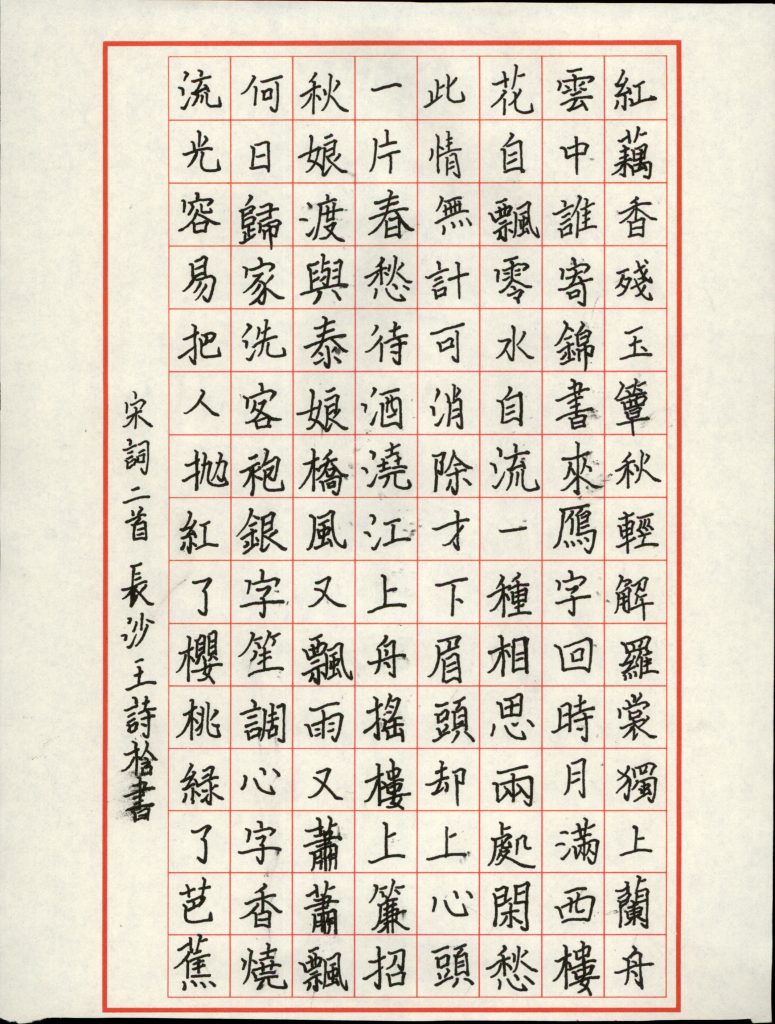 紅藕香殘玉簟秋輕解羅裳獨上蘭舟
雲中誰寄錦書來鴈字回時月滿西樓
花自飄零水自流一種相思兩處閑愁
此情無計可消除才下眉頭却上心頭
一片春愁待酒澆江上舟搖樓上簾招
秋娘渡與泰娘橋風又飄雨又蕭蕭飄
何日歸家洗客袍銀字笙調心字香燒
流光容易把人抛紅了櫻桃綠了芭蕉
宋詞二首 長沙王詩書